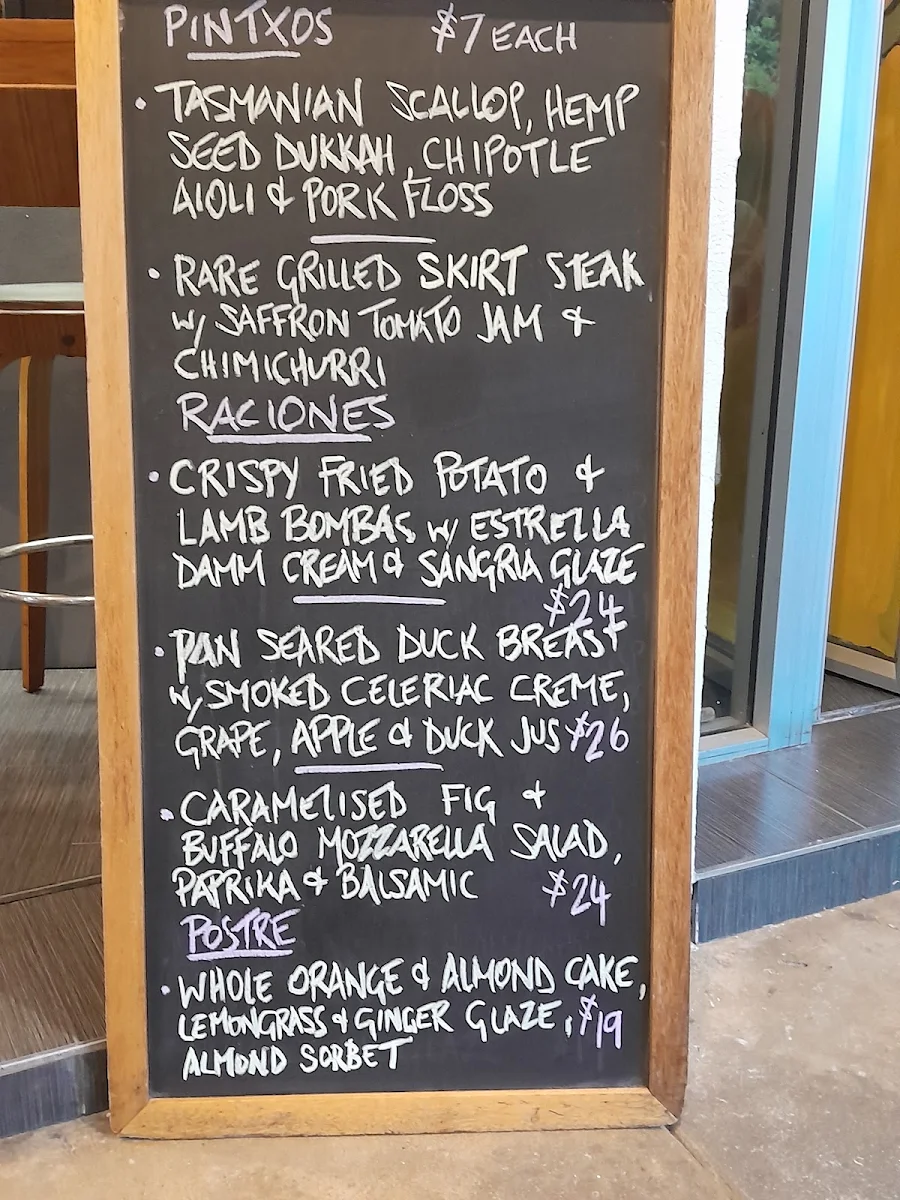 PINTXOS $7 EACH
• TASMANIAN SCALLOP, HEMP
SEED DUKKAH, CHIPOTLE
AIOLI & PORK FLOSS
• RARE GRILLED SKIRT STEAK
w/ SAFFRON TOMATO JAM &
CHIMICHURRI
RACIONES
• CRISPY FRIED POTATO &
LAMB BOMBAS w/ ESTRELLA
DAMM CREAM & SANGRIA GLAZE
$24
• PAN SEARED DUCK BREAST
w/ SMOKED CELERIAC CREME,
GRAPE, APPLE & DUCK JUS $26
• CARAMELISED FIG &
BUFFALO MOZZARELLA SALAD,
PAPRIKA & BALSAMIC $24
POSTRE
• WHOLE ORANGE & ALMOND CAKE,
LEMONGRASS & GINGER GLAZE, $19
ALMOND SORBET